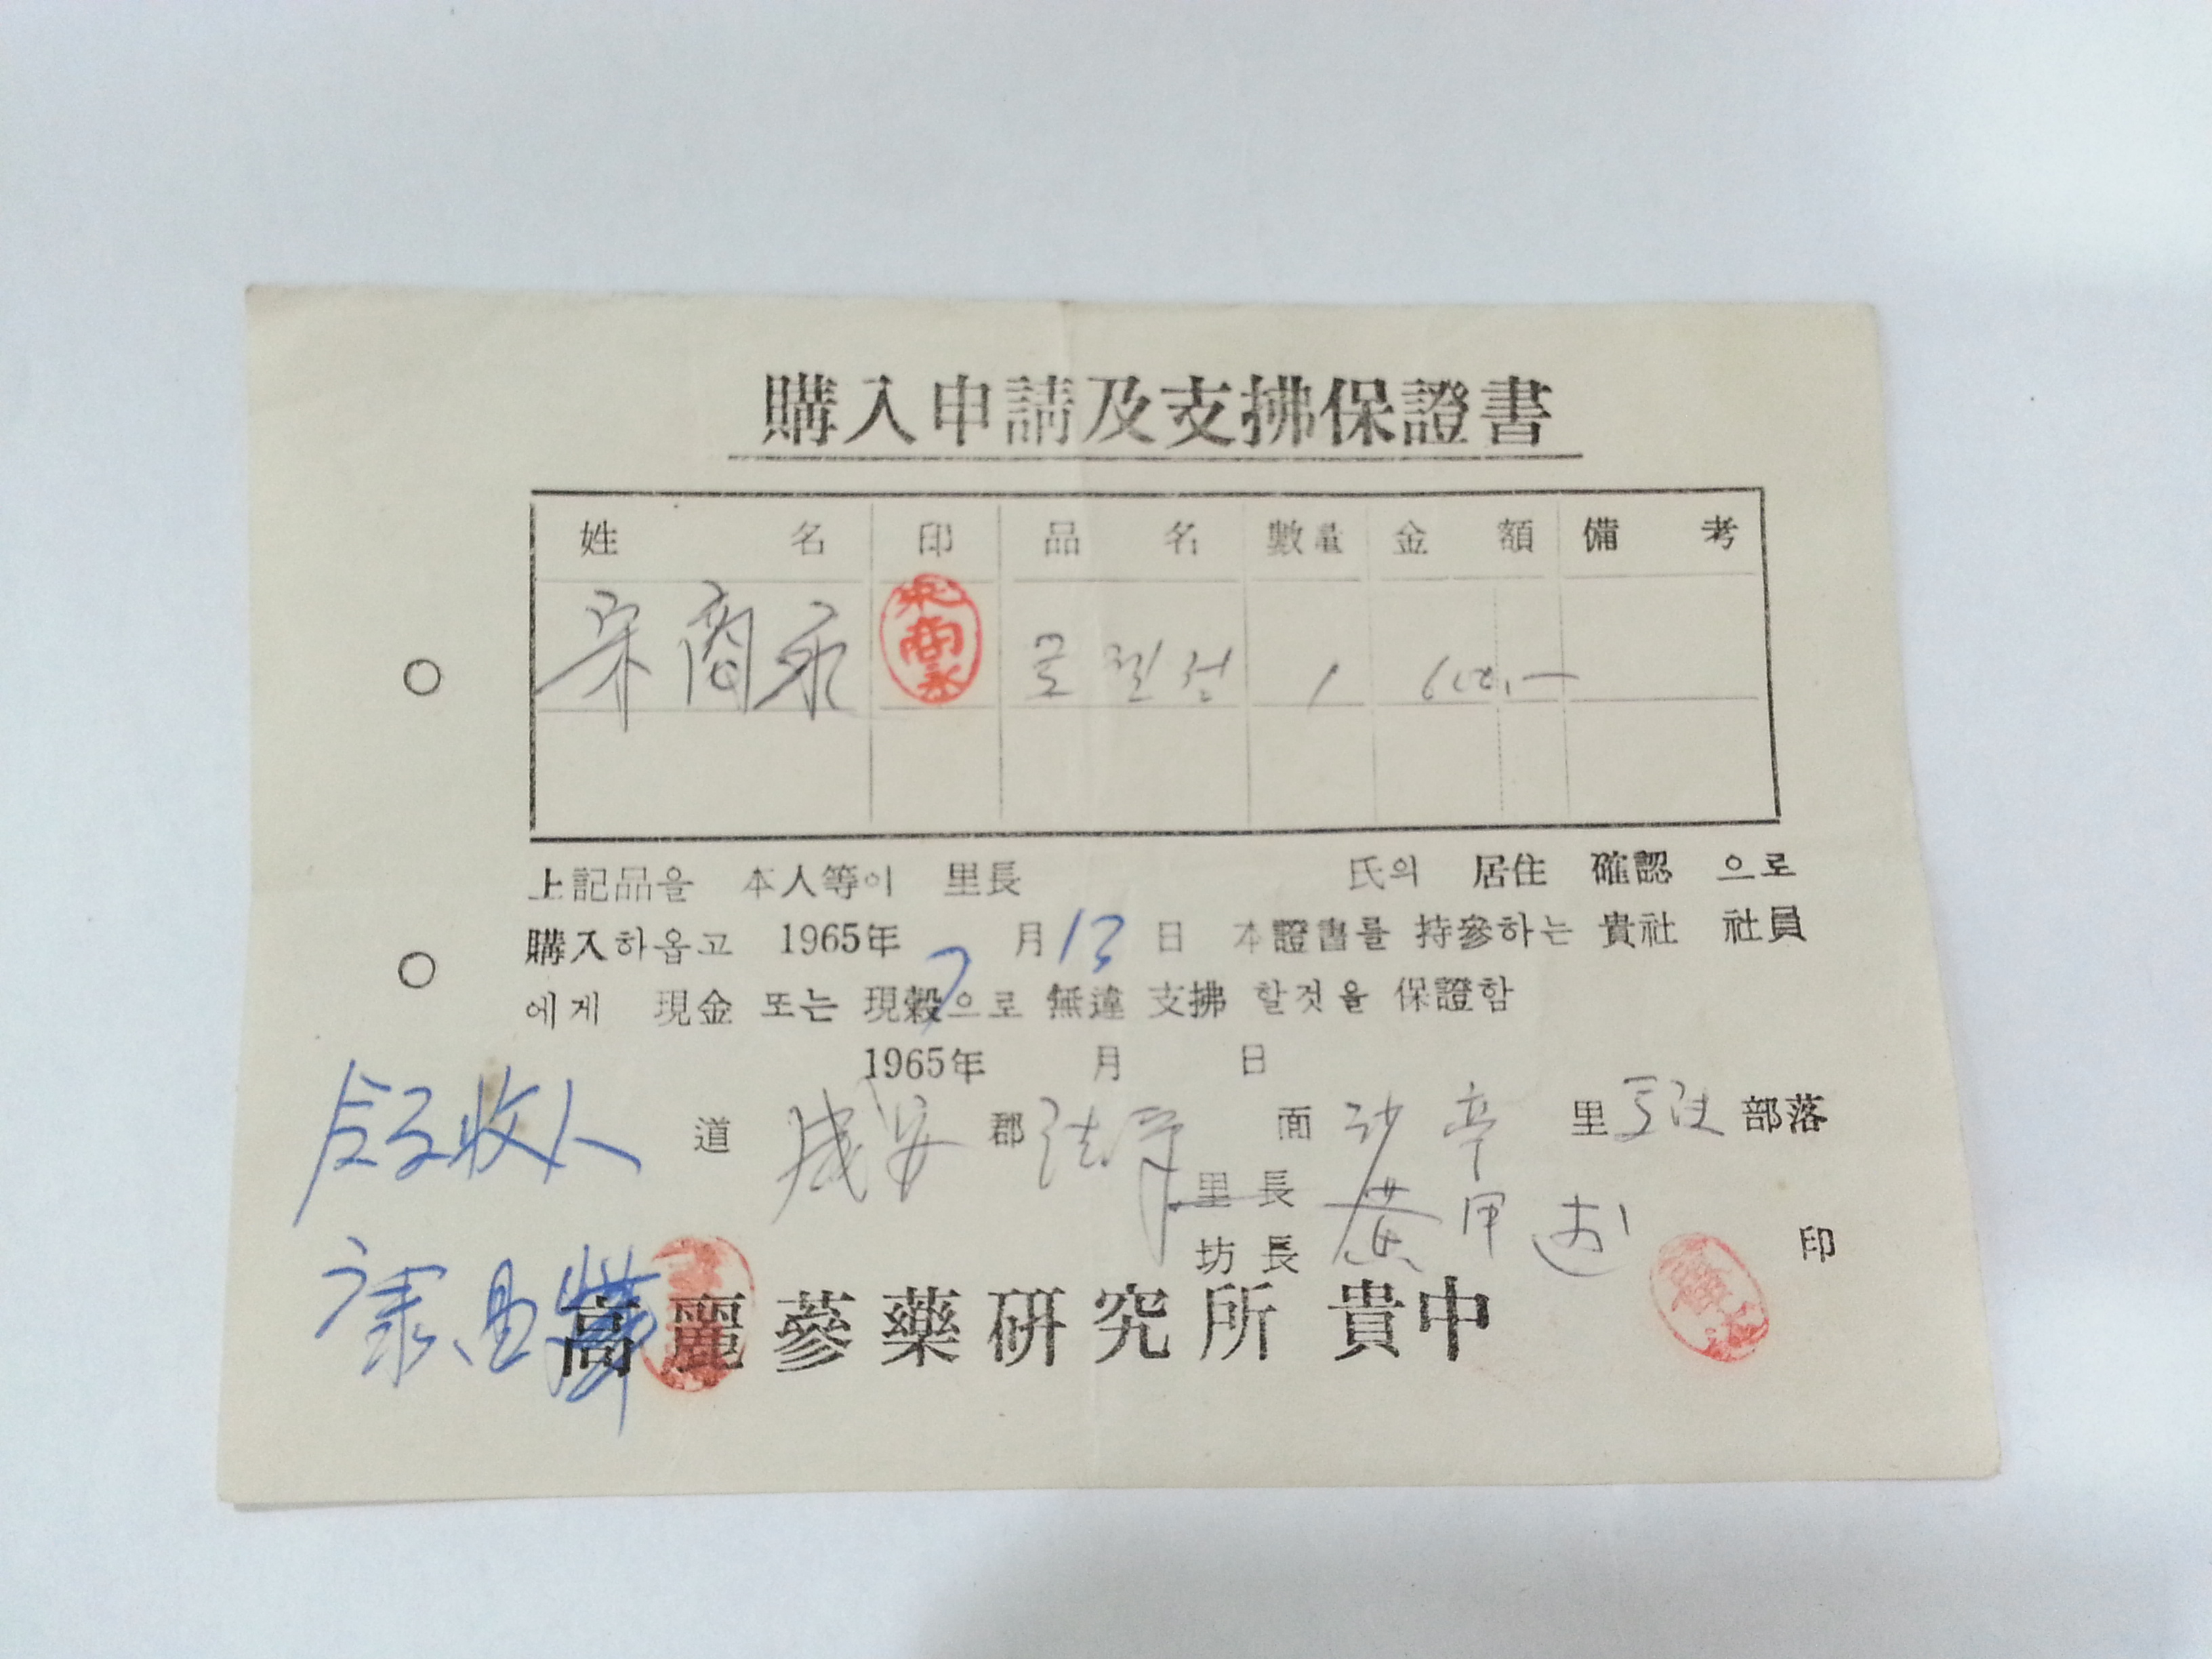 購入申請及支拂保證書
姓名 印 品名 數量 金額 備考
宋商永 宋商永 1
上記品을 本人等이 里長 氏의 居住 確認 으로
購入하옵고 1965年 7 月 13 日 本證書를 持參하는 貴社 社員
에게 現金 또는 現穀으로 無違 支拂 할것을 保證함
1965年 月 日
道 咸安 郡 法守 面 沙亭 里 部落
里長 黃甲
坊長 印
高麗蔘藥硏究所 貴中
領收人